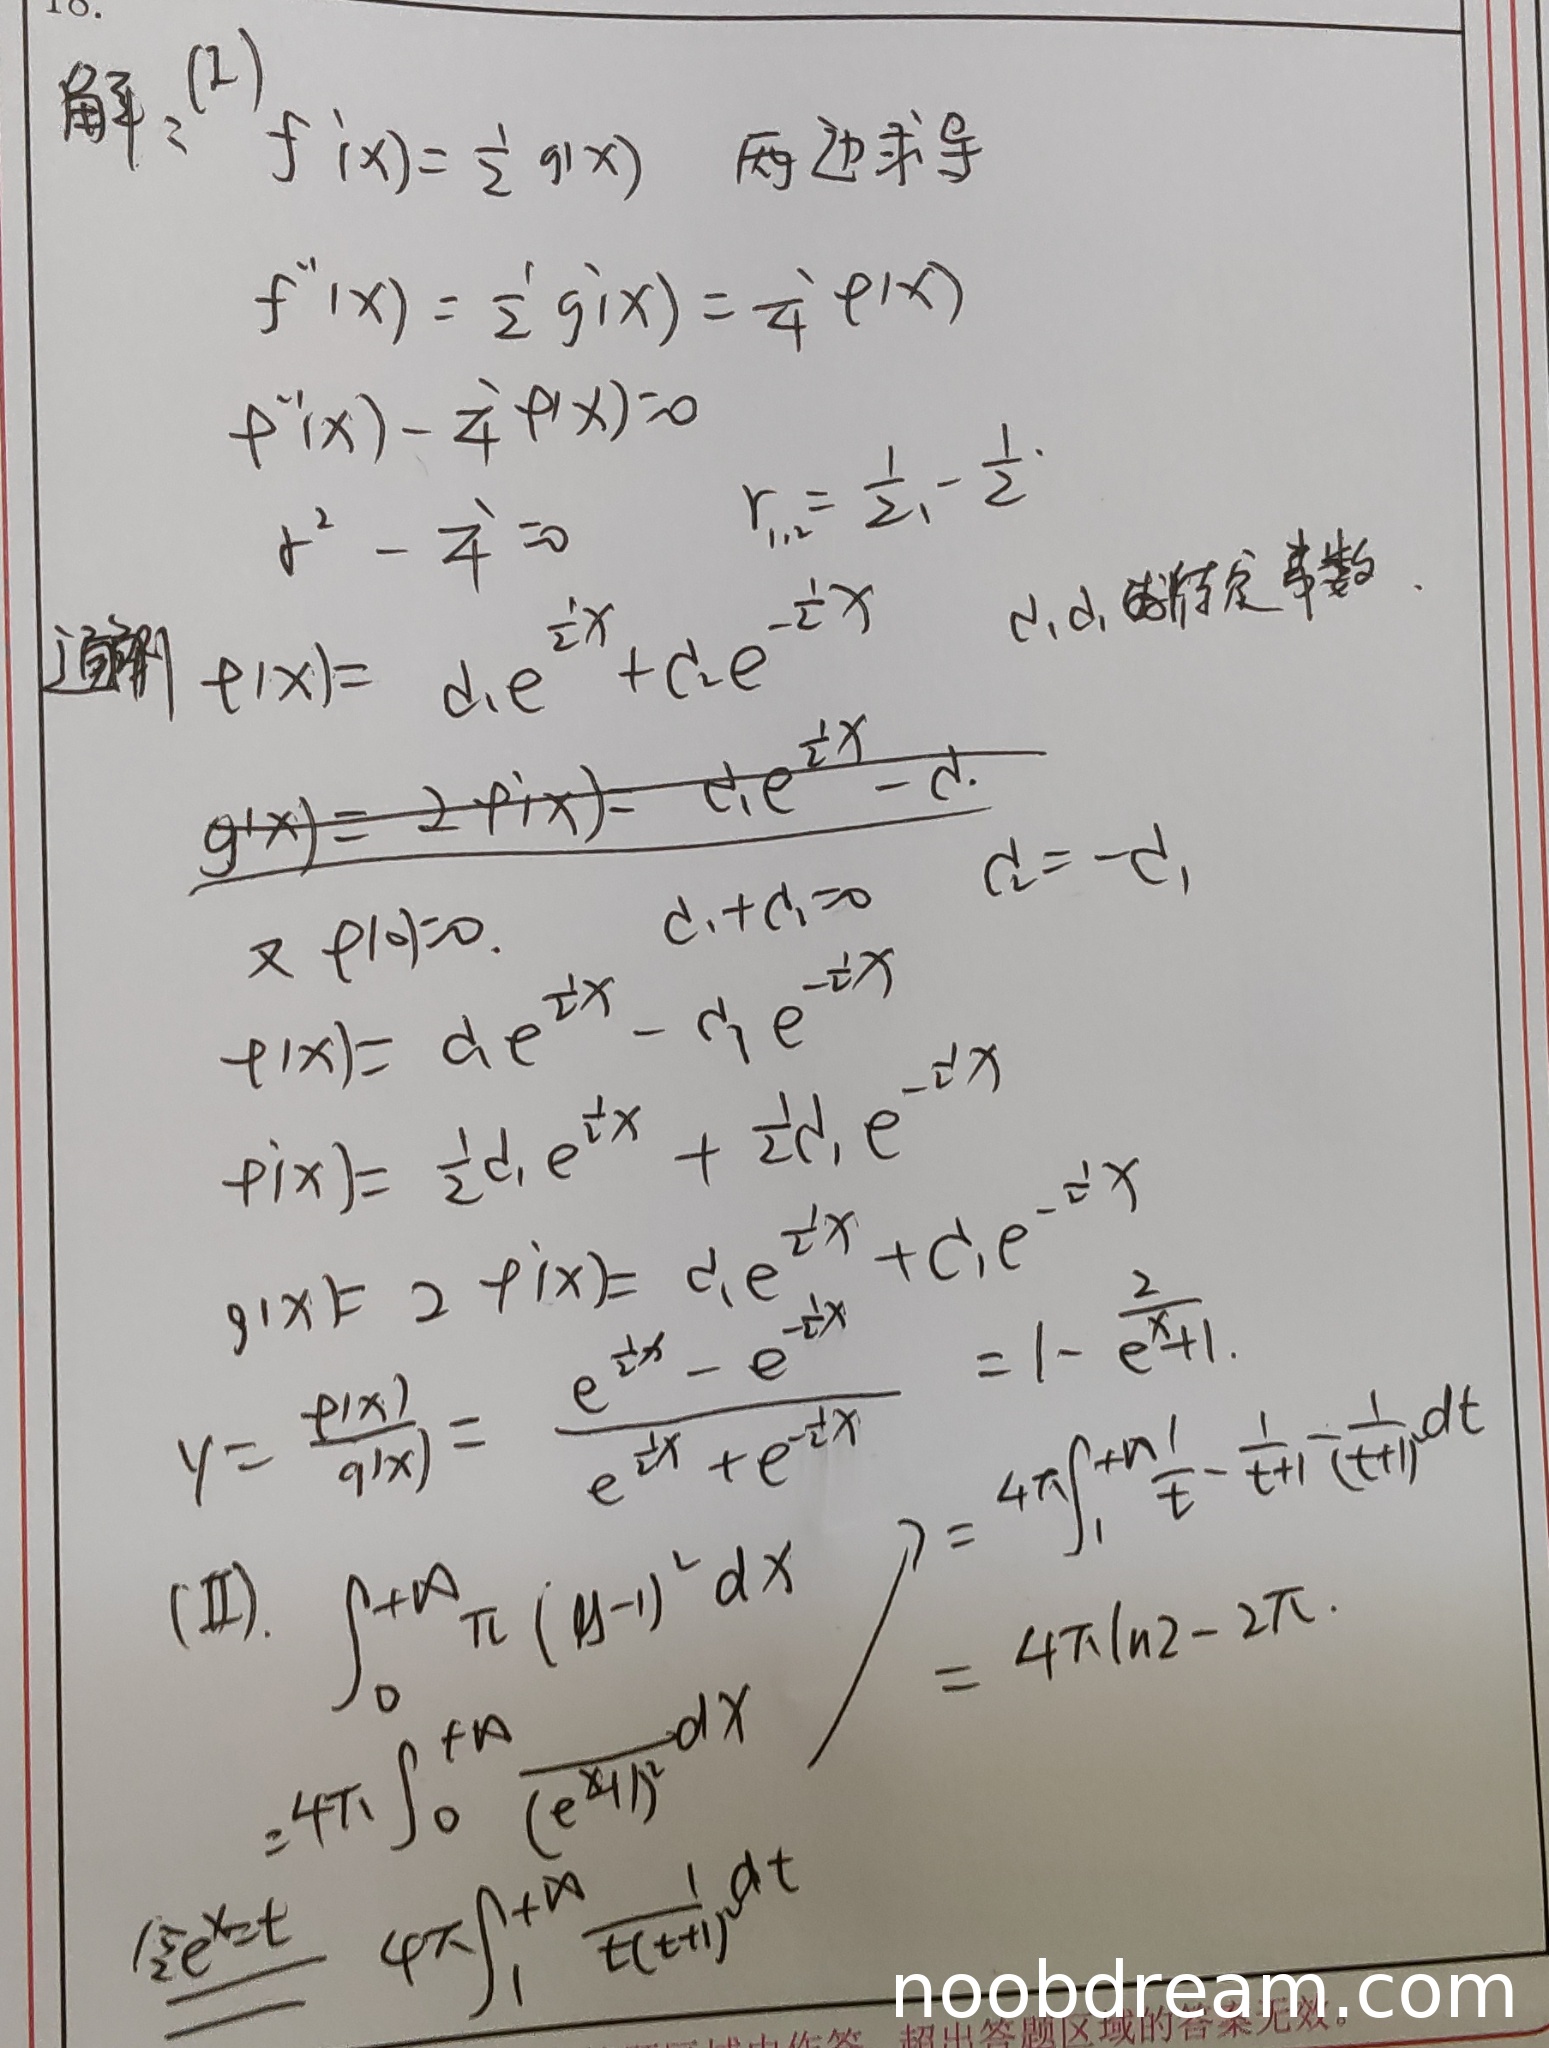 18.
解: (I)
f'(x) = 1/2 g(x) 两边求导
f''(x) = 1/2 g'(x) = 1/4 f(x)
f''(x) - 1/4 f(x) = 0
r² - 1/4 = 0 r₁,₂ = 1/2, -1/2.
通解 f(x) = d₁e^{1/2 x} + d₂e^{-1/2 x} d₁d₁ 待定常数.
g(x) = 2f'(x) = d₁e^{1/2 x} - d.
又 f(0)=0. d₁+d₁=0 d₂ = -d₁
f(x) = d₁e^{1/2 x} - d₁e^{-1/2 x}
f'(x) = 1/2 d₁e^{1/2 x} + 1/2 d₁e^{-1/2 x}
g(x) = 2f'(x) = d₁e^{1/2 x} + d₁e^{-1/2 x}
y = f(x)/g(x) = (e^{1/2 x} - e^{-1/2 x})/(e^{1/2 x} + e^{-1/2 x}) = 1 - 2/(e^x+1).
(II). ∫_0^{+∞} π(y-1)² dx
= 4π∫_0^{+∞} /(e^x+1)² dx
令e^x=t 4π∫_1^{+∞} 1/(t(t+1)²) dt
= 4π∫_1^{+∞} 1/t - 1/(t+1) - 1/(t+1)² dt
= 4πln2 - 2π.
超出答题区域的答案无效。
noobdream.com